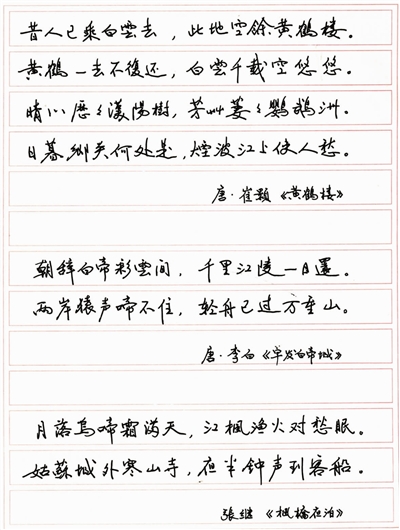 昔人已乘白雲去，此地空餘黄鶴楼。
黄鶴一去不復还，白雲千載空悠悠。
晴川歷々漢陽樹，芳艸萋々鸚鵡洲。
日暮鄉关何处是，煙波江上使人愁。
唐·崔颢《黄鶴楼》
朝辞白帝彩雲間，千里江陵一日還。
两岸猿声啼不住，轻舟已过万重山。
唐·李白《早发白帝城》
月落烏啼霜满天，江楓渔火对愁眠。
姑蘇城外寒山寺，夜半钟声到客船。
張继《楓橋夜泊》